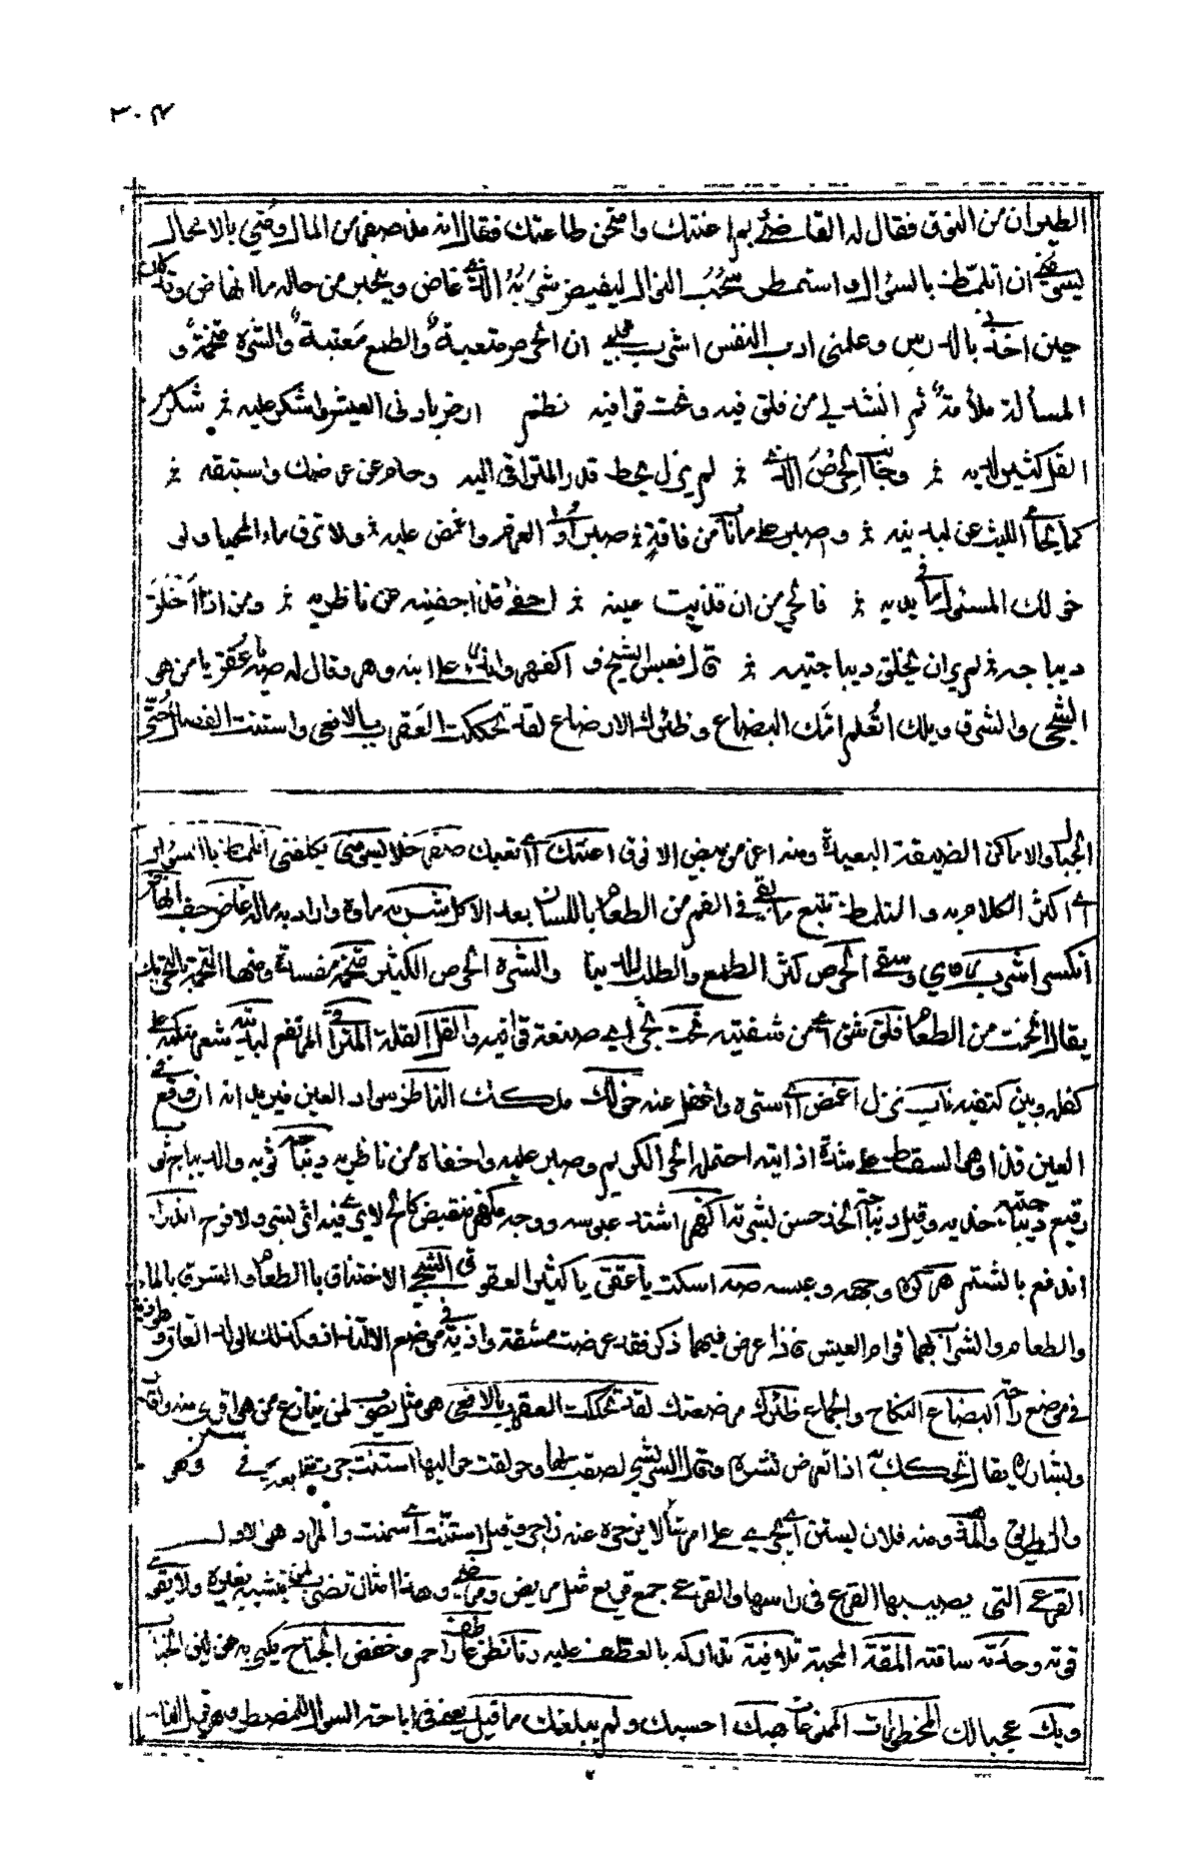 ٣٠٤
الطيران من النوق فقال له القاضي بم اعنتك وامتحن طاعتك فقال انه مذ صفر من المال ومني بالامحال
يسومني ان اتلمظ بالسؤال واستمطر سحب النوال ليفيض شربه الذي غاض وينجبر من حاله ما انهاض وقد كان
حين اخذني بالدرس وعلمني ادب النفس اشرب قلبي ان الحرص متعبة والطمع معتبة والشره متخمة و
المسألة ملأمة ثم انشدني من فلق فيه ونحت قوافيه نظم ارض بادنى العيش واشكر عليه شكر
القل كثير لديه وجانب الحرص الذي لم يزل يحط قدر المتراقي اليه وحام عن عرضك واستبقه
كما يحامي الليث عن لبدتيه واصبر على ما ناب من فاقة صبر اولي العزم واغمض عليه ولا ترق ماء المحيا ولو
خولك المسئول ما في يديه فالحر من ان قذيت عينه اخفى قذى جفنيه عن ناظريه ومن اذا اخلق
ديباجه لم ير ان يخلق ديباجتيه قال فعبس الشيخ واكفهر واندرأ على ابنه وهر وقال له صه يا عقق يا من هو
الشجى والشرق ويلك اتعلم امك البضاع وظئرك الارضاع لقد تحككت العقرب بالافعى واستنت الفصال حتى
الجبال والاماكن الضيقة البعيدة ومنه اعز من بيض الانوق اعنتك اي اتعبك صفر خلا يسومني يكلفني اتلمظ بالسؤال
اي اكثر الكلام به والتلمظ تتبع ما بقي في الفم من الطعام باللسان بعد الاكل شربه ماؤه واراد به ماله غاض جف انهاض
انكسر اشرب قلبي وسقي الحرص كثرة الطمع والطلب للدنيا والشره الحرص الكثير متخمة مفسدة ومنها التخمة
يقال اتخمت من الطعام فلق شق اي من شفتيه نحت نجر اي صنعة قوافيه والقل القلة المتراقي المرتفع لبدتيه شعر متلبد على
كفله وبين كتفيه ناب نزل اغمض اي استره واغفل عنه خولك ملكك الناظر سواد العين فيريد انه ان وقع في
العين قذى وهو السقاط على مثله اذايته احتمله الحر الكريم وصبر عليه واخفاه من ناظريه ديباجته ثوبه والديباج ثوب
رقيع ديباجتيه خديه وقيل ديباجة الخد حسن بشرته اكفهر اشتد عبوسه ووجه مكفهر منقبض كالح لا يرى فيه اثر بشر ولا فرح اندرأ
اندفع بالشتم هر كره وجهه وعبسه صه اسكت يا عقق يا كثير العقوق الشجى الاختناق بالطعام والشرق بالماء
والطعام والشراب بهما قوام العيش فاذا عرض فيهما ذكر فقد عرضت مشقة واذية في موضع الالتذاذ وكذلك الولد العاق
في موضع راحة البضاع النكاح والجماع ظئرك مرضعتك لقد تحككت العقرب بالافعى هو مثل يضرب لمن ينازع من هو اقوى منه
وبشاره يقال تحكك اذا تعرض لشره وقال الشريشي لصقت بها وحولقت حواليها استنت جرت
والطريق والمدة ومنه فلان يستن اي يجري على امر لا يزجره عنه زاجر وقيل استنت اي سمنت والمراد هو الاول
القرعى التي يصيبها القرع في راسها والقرعى جمع قريع مثل مريض ومرضى وهذا امثال تضرب لمن يتشبه بغيره ولا يقوى
قوته وحدته ساقته المقة المحبة تلافيه تداركه بالعطف عليه رنا نظر عاطفا راحم وخفض الجناح يكنى به عن لين الجناب
ويك عجبا لك المحظورات الممنوعات هبك احسبك ولم يبلغك ما قيل يعني في اباحة السؤال للمضطر وهو قول